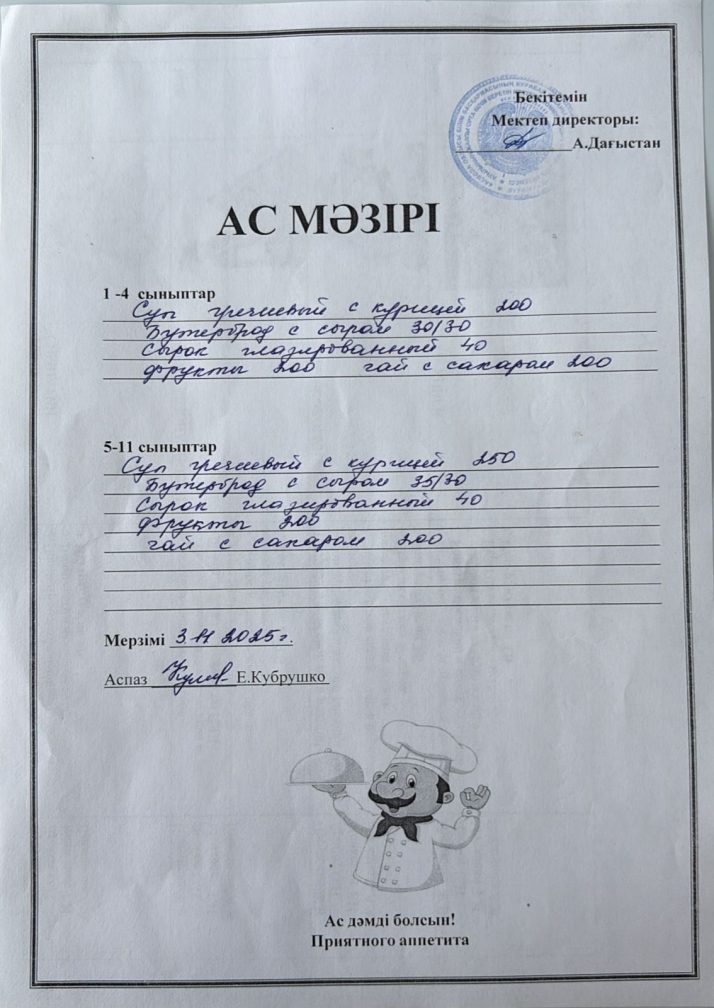 Бекітемін
Мектеп директоры:
А.Дағыстан
АС МӘЗІРІ
1 -4 сыныптар
Суп гречневый с курицей 200
Бутерброд с сыром 30/30
Сырок глазированный 40
Фрукты 200 чай с сахаром 200
5-11 сыныптар
Суп гречневый с курицей 250
Бутерброд с сыром 35/30
Сырок глазированный 40
Фрукты 200
чай с сахаром 200
Мерзімі 3.11 2025г.
Аспаз Е.Кубрушко
Ас дәмді болсын!
Приятного аппетита